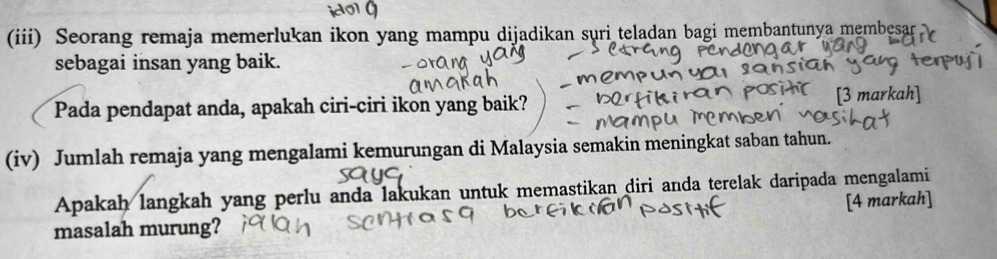 idola
(iii) Seorang remaja memerlukan ikon yang mampu dijadikan suri teladan bagi membantunya membesar
sebagai insan yang baik.
- orang yang
amanah
- seorang pendengar yang baik
- mempunyai sansiah yang terpuji
- berfikiran positif
- mampu memberi nasihat
Pada pendapat anda, apakah ciri-ciri ikon yang baik? [3 markah]
(iv) Jumlah remaja yang mengalami kemurungan di Malaysia semakin meningkat saban tahun.
saya
Apakah langkah yang perlu anda lakukan untuk memastikan diri anda terelak daripada mengalami
masalah murung? [4 markah]
ialah sentiasa berfikiran positif